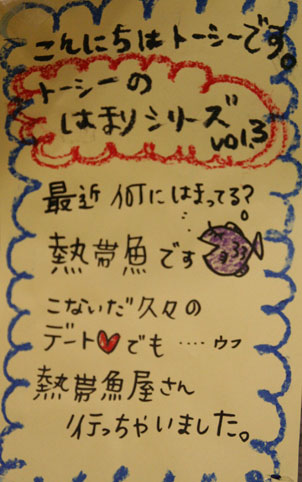 こんにちはトーシーです。
トーシーの
はまりシリーズ
vol.3
最近何にはまってる?
熱帯魚です
こないだ久々の
デート♥でも‥‥ウフ
熱帯魚屋さん
行っちゃいました。